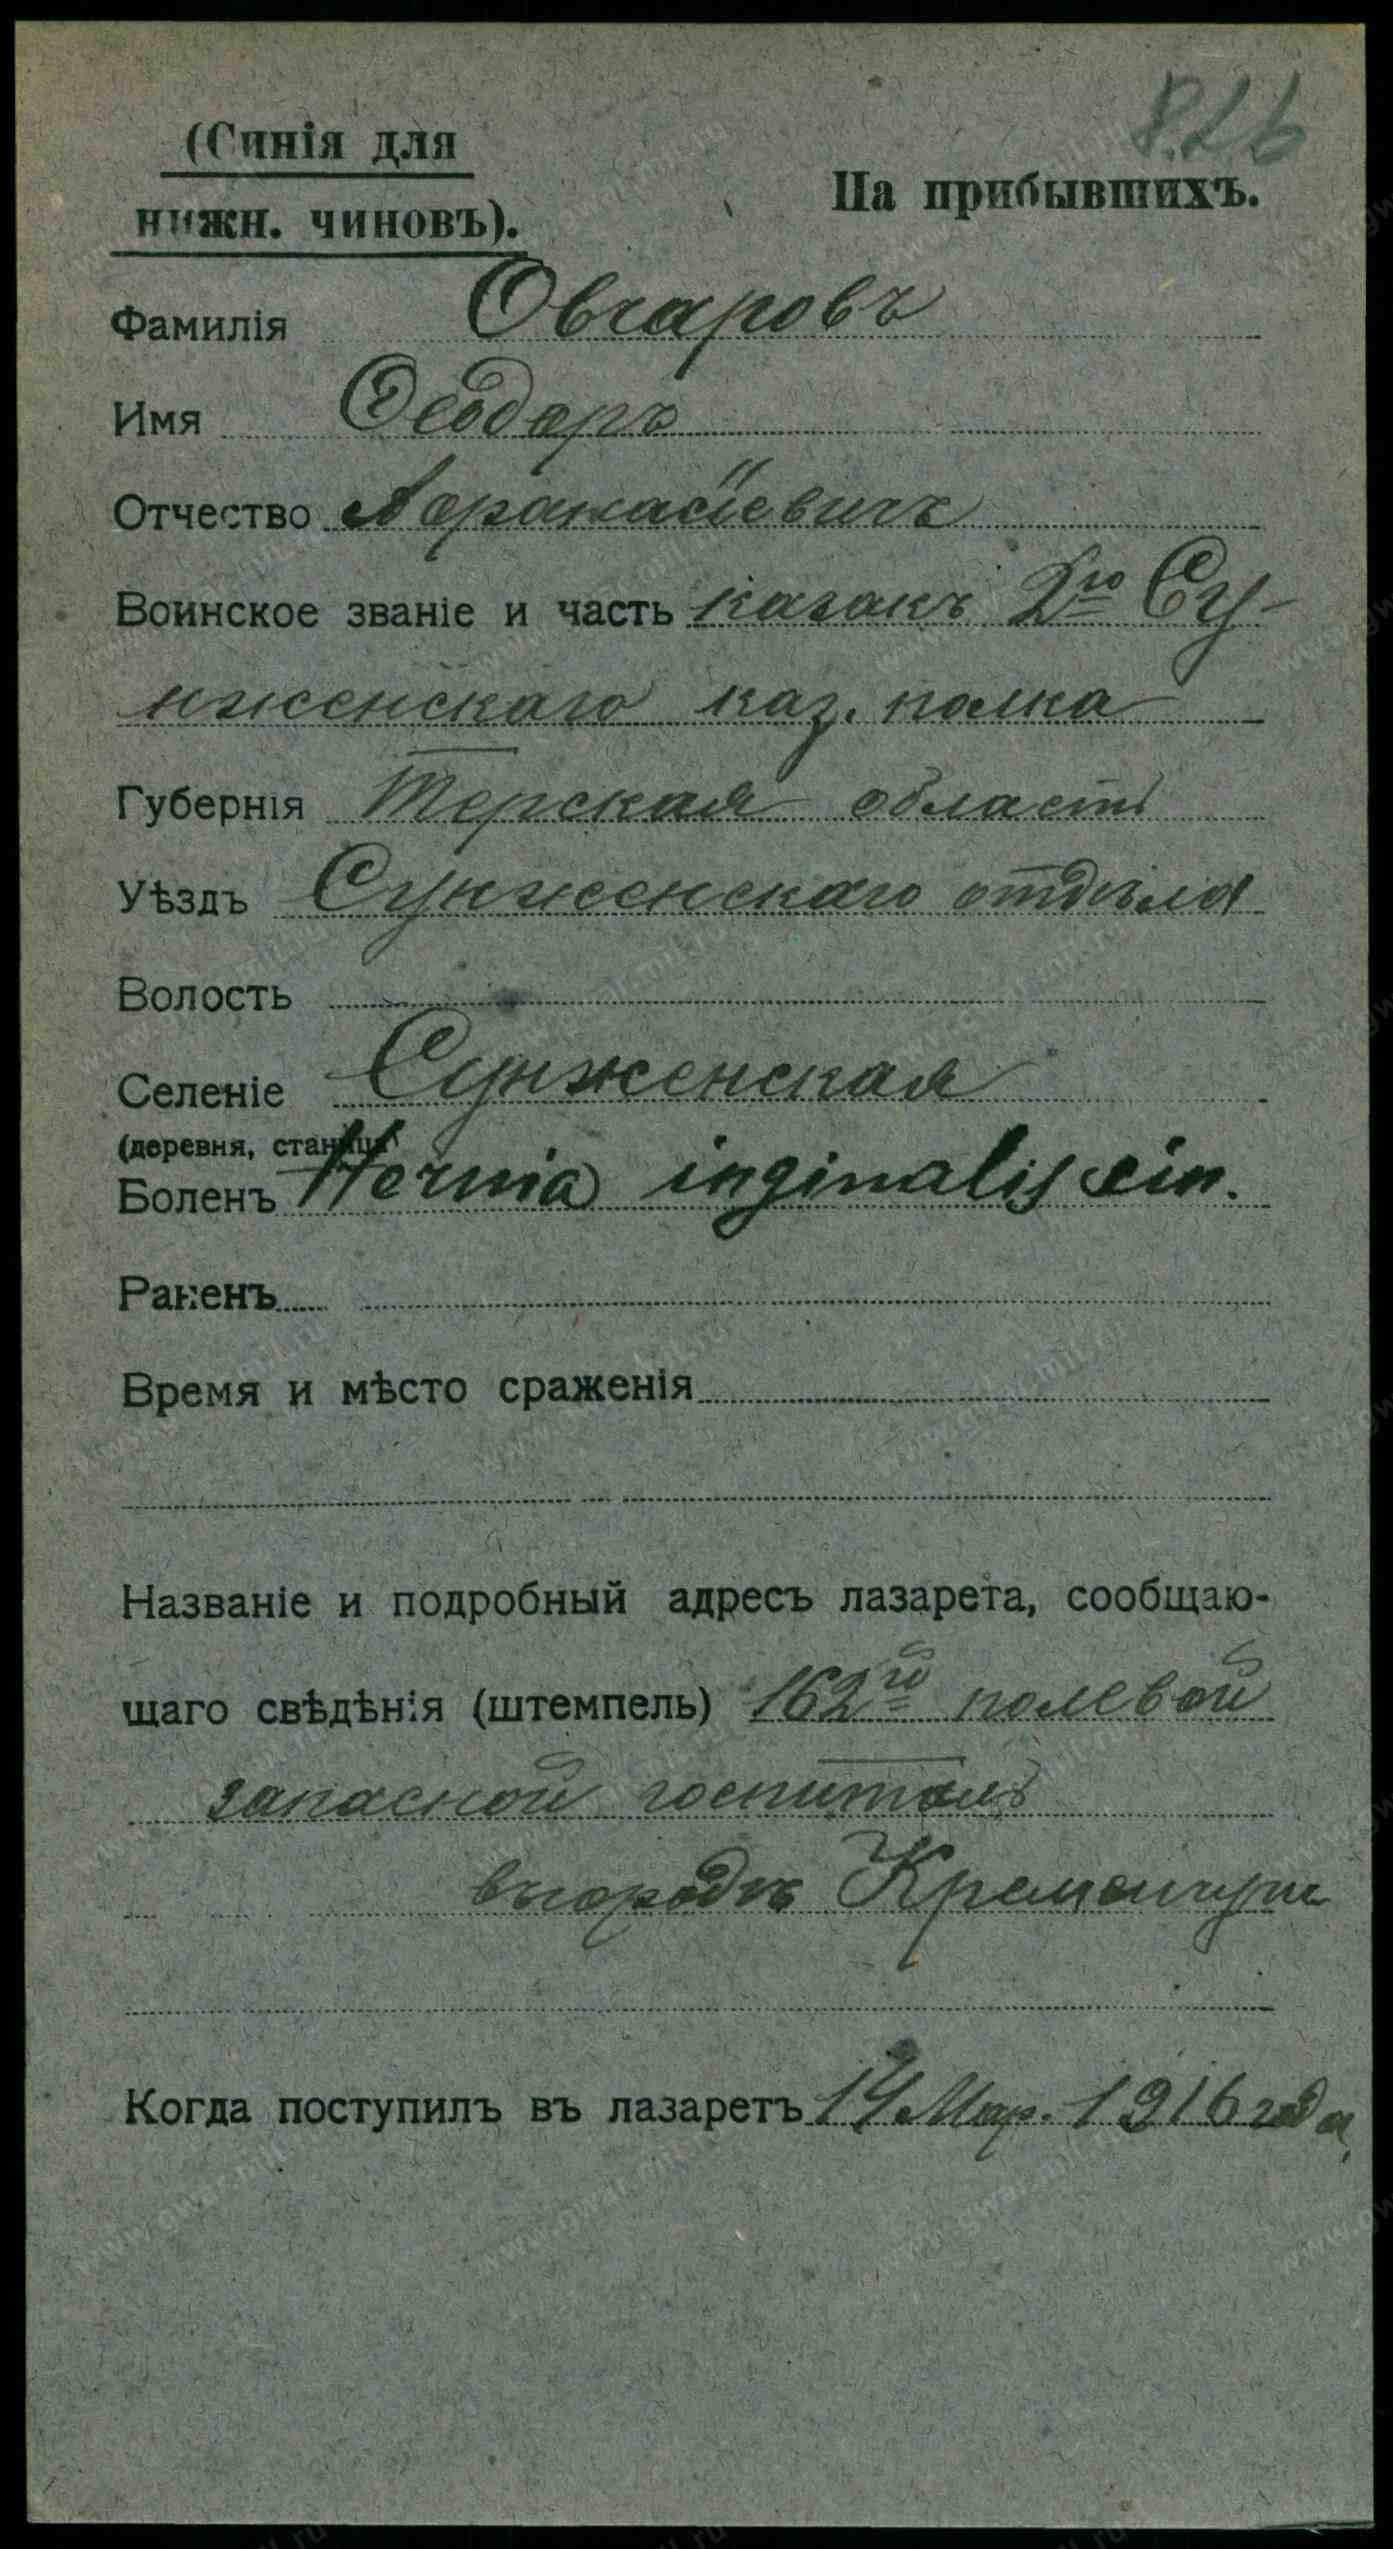 826
(Синія для
нижн. чиновъ).
На прибывшихъ.
Фамилія Овчаровъ
Имя Ѳеодоръ
Отчество Афанасіевичъ
Воинское званіе и часть казакъ 2го Су-
нженскаго каз. полка
Губернія Терская область
Уѣздъ Сунженскаго отдѣла
Волость
Селеніе Сунженская
(деревня, станица)
Боленъ Hernia inginalis sin.
Раненъ
Время и мѣсто сраженія
Названіе и подробный адресъ лазарета, сообщаю-
щаго свѣдѣнія (штемпель) 162го полевой
запасной госпиталь
въ городѣ Кременчугѣ
Когда поступилъ въ лазаретъ 14 Мар. 1916 года